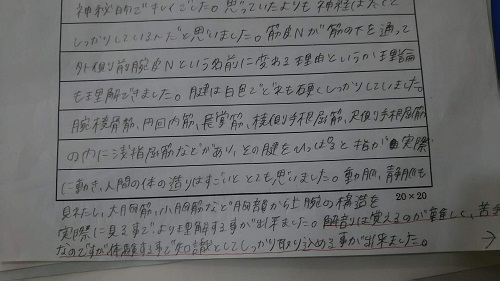 神秘的でキレイでした。思っていたよりも神経はたくさん
しっかりしているんだと思いました。筋皮Nが筋の下を通って
外側前腕皮Nという名前に変わる理由というか理論
も理解できました。腱は白色でどれも硬くしっかりしていました。
腕橈骨筋、円回内筋、長掌筋、橈側手根屈筋、尺側手根屈筋
の内に浅指屈筋などがあり、その腱をひっぱると指が実際
に動き、人間の体の造りはすごいととても思いました。動脈、静脈も
20×20
見れたし、大胸筋、小胸筋など胸部から上腕の構造を
実際に見る事でより理解する事が出来ました。解剖は覚えるのが難しく、苦手
なのですが体験する事で知識としてしっかり取り込める事が出来ました。
→